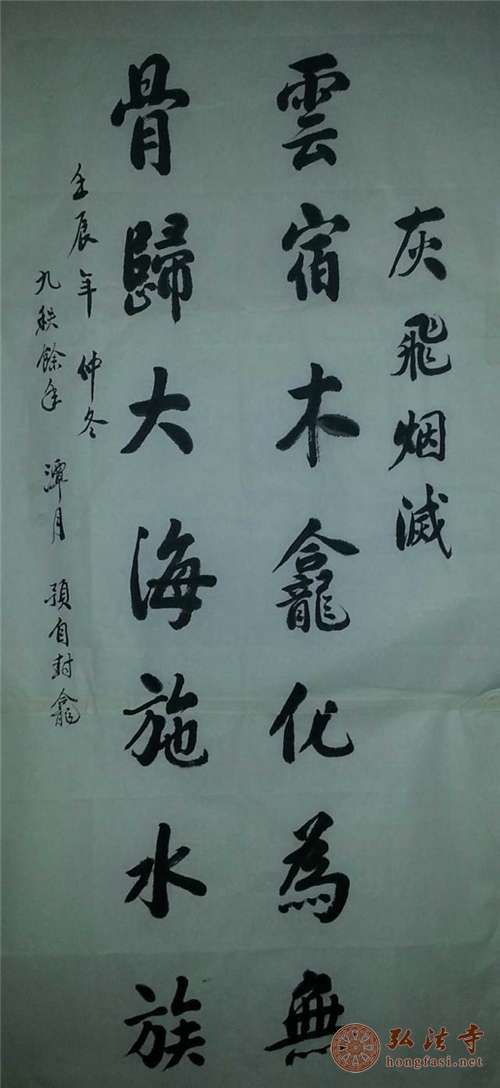 灰飛烟滅
雲宿木龕化為無
骨歸大海施水族
壬辰年仲冬
九秩餘年 潭月 預自封龕
弘法寺
hongfasi.net